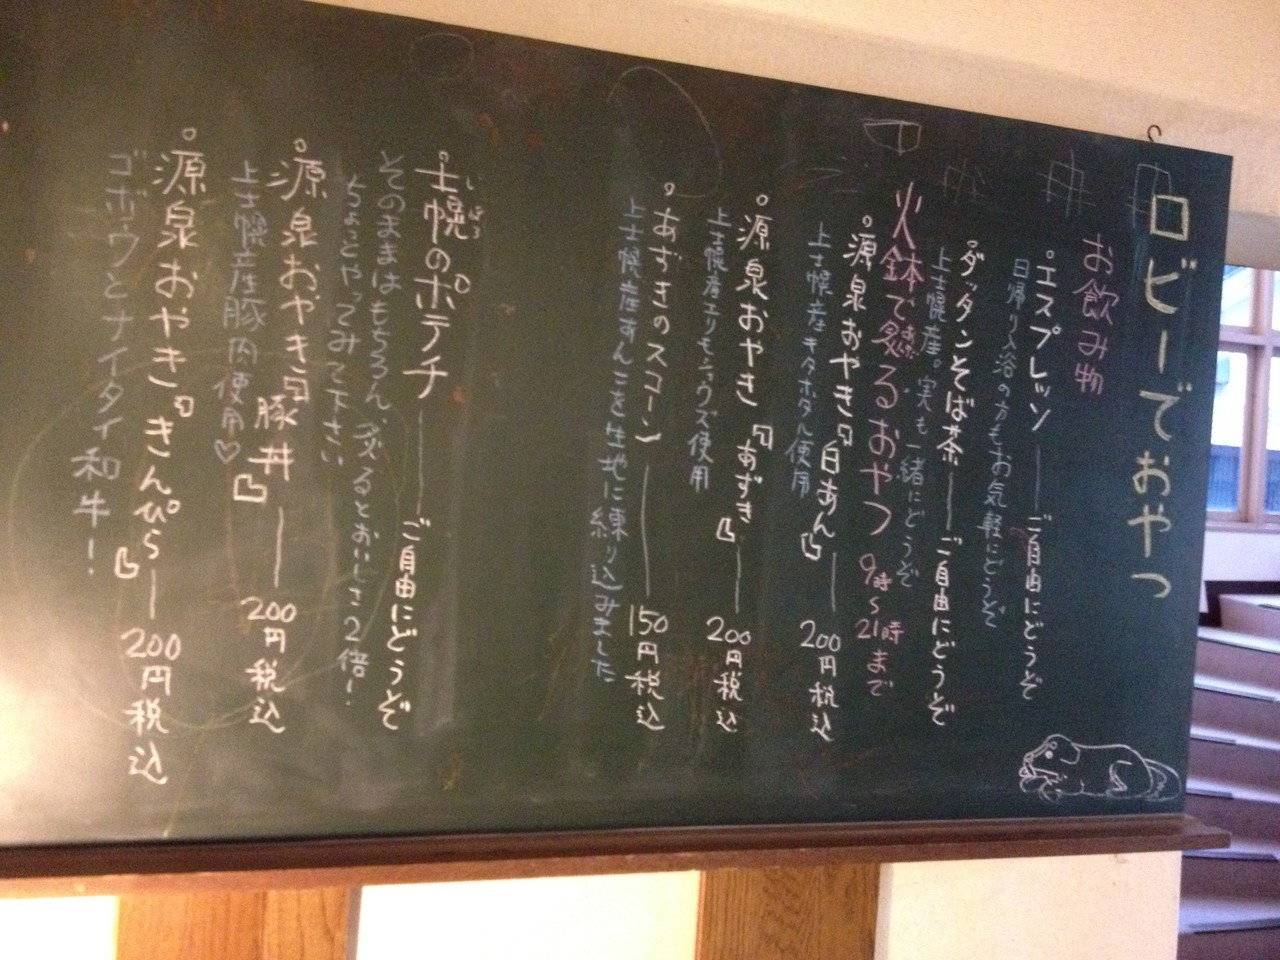 ロビーでおやつ
お飲み物
エスプレッソ――ご自由にどうぞ
日帰り入浴の方もお気軽にどうぞ
ダッタンそば茶――ご自由にどうぞ
上士幌産。実も一緒にどうぞ
火鉢で炙るおやつ 9時〜21時まで
源泉おやき『白あん』――200円税込
上士幌産キタホタル使用
源泉おやき『あずき』――200円税込
上士幌産エリモショウズ使用
あずきのスコーン――150円税込
上士幌産あんこを生地に練り込みました
士幌のポテチ――ご自由にどうぞ
しほろ
そのままはもちろん、炙るとおいしさ2倍!
ちょっとやってみて下さい
源泉おやき『豚丼』――200円税込
上士幌産豚肉使用♡
源泉おやき『きんぴら』――200円税込
ゴボウとナイタイ和牛!